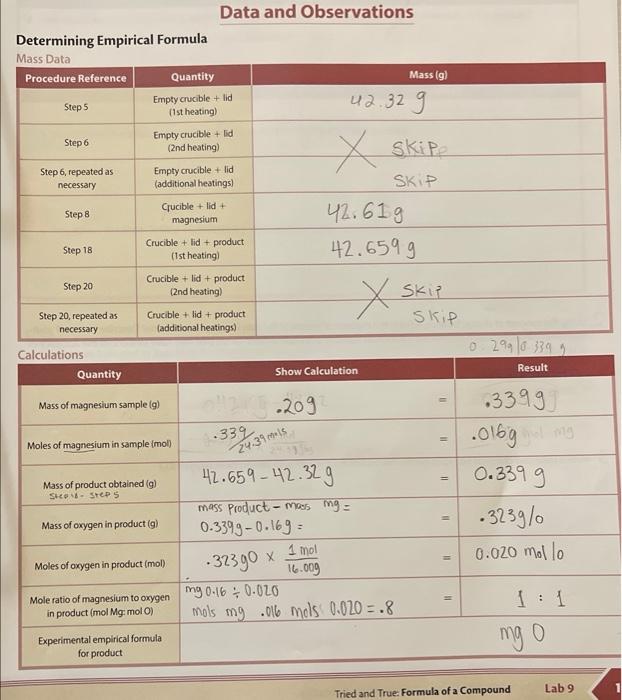 Data and Observations
Determining Empirical Formula
Mass Data
Procedure Reference Quantity Mass (g)
Step 5 Empty crucible + lid (1st heating) 42.32 g
Step 6 Empty crucible + lid (2nd heating) X SKIP
Step 6, repeated as necessary Empty crucible + lid (additional heatings) SKIP
Step 8 Crucible + lid + magnesium 42.61g
Step 18 Crucible + lid + product (1st heating) 42.659g
Step 20 Crucible + lid + product (2nd heating) X SKIP
Step 20, repeated as necessary Crucible + lid + product (additional heatings) SKIP
0.29g/0.339 g
Calculations
Quantity Show Calculation Result
Mass of magnesium sample (g) .20g = .339g
Moles of magnesium in sample (mol) .339/24.39 mols = .016g mol mg
Mass of product obtained (g) 42.659-42.32g = 0.339 g
Step 18 - Step 5
Mass of oxygen in product (g) mass product - mass mg = = .323g/o
0.339g-0.16g =
Moles of oxygen in product (mol) .323gO x 1 mol/16.00g = 0.020 mol/o
Mole ratio of magnesium to oxygen in product (mol Mg: mol O) mg 0.16 ÷ 0.020 = 1 : 1
mols mg .016 mols 0.020 = .8
Experimental empirical formula for product mg O
Tried and True: Formula of a Compound Lab 9 1